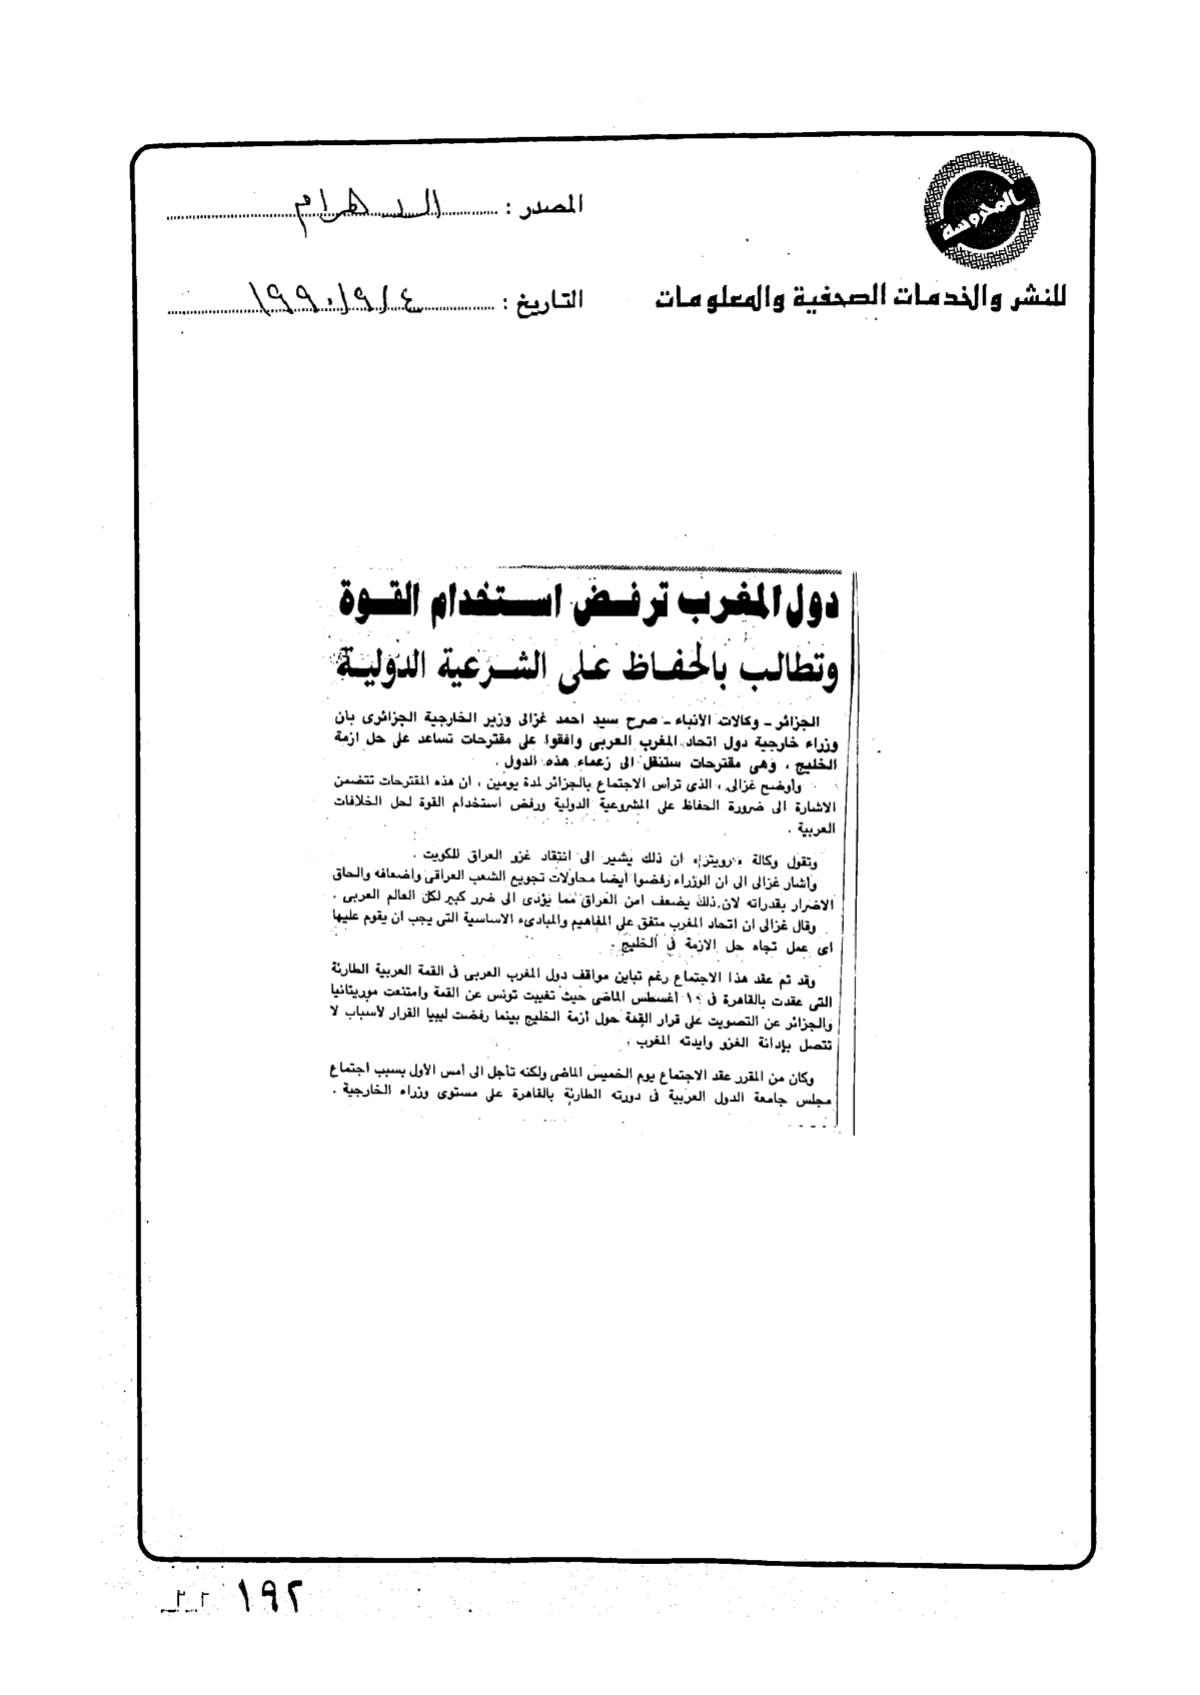 المحروسة
المصدر : الاهرام
للنشر والخدمات الصحفية والمعلومات
التاريخ : ٤/٩/١٩٩٠
دول المغرب ترفض استخدام القوة
وتطالب بالحفاظ على الشرعية الدولية
الجزائر - وكالات الأنباء - صرح سيد احمد غزالى وزير الخارجية الجزائرى بان
وزراء خارجية دول اتحاد المغرب العربى وافقوا على مقترحات تساعد على حل ازمة
الخليج ، وهى مقترحات ستنقل الى زعماء هذه الدول .
وأوضح غزالى ، الذى ترأس الاجتماع بالجزائر لمدة يومين ، ان هذه المقترحات تتضمن
الاشارة الى ضرورة الحفاظ على المشروعية الدولية ورفض استخدام القوة لحل الخلافات
العربية .
وتقول وكالة «رويتر» ان ذلك يشير الى انتقاد غزو العراق للكويت .
وأشار غزالى الى ان الوزراء رفضوا أيضا محاولات تجويع الشعب العراقى واضعافه والحاق
الاضرار بقدراته لان ذلك يضعف امن العراق مما يؤدى الى ضرر كبير لكل العالم العربى .
وقال غزالى ان اتحاد المغرب متفق على المفاهيم والمبادىء الاساسية التى يجب ان يقوم عليها
اى عمل تجاه حل الازمة فى الخليج .
وقد تم عقد هذا الاجتماع رغم تباين مواقف دول المغرب العربى فى القمة العربية الطارئة
التى عقدت بالقاهرة فى ١٠ أغسطس الماضى حيث تغيبت تونس عن القمة وامتنعت موريتانيا
والجزائر عن التصويت على قرار القمة حول أزمة الخليج بينما رفضت ليبيا القرار لأسباب لا
تتصل بإدانة الغزو وايدته المغرب .
وكان من المقرر عقد الاجتماع يوم الخميس الماضى ولكنه تأجل الى أمس الأول بسبب اجتماع
مجلس جامعة الدول العربية فى دورته الطارئة بالقاهرة على مستوى وزراء الخارجية .
١٩٢